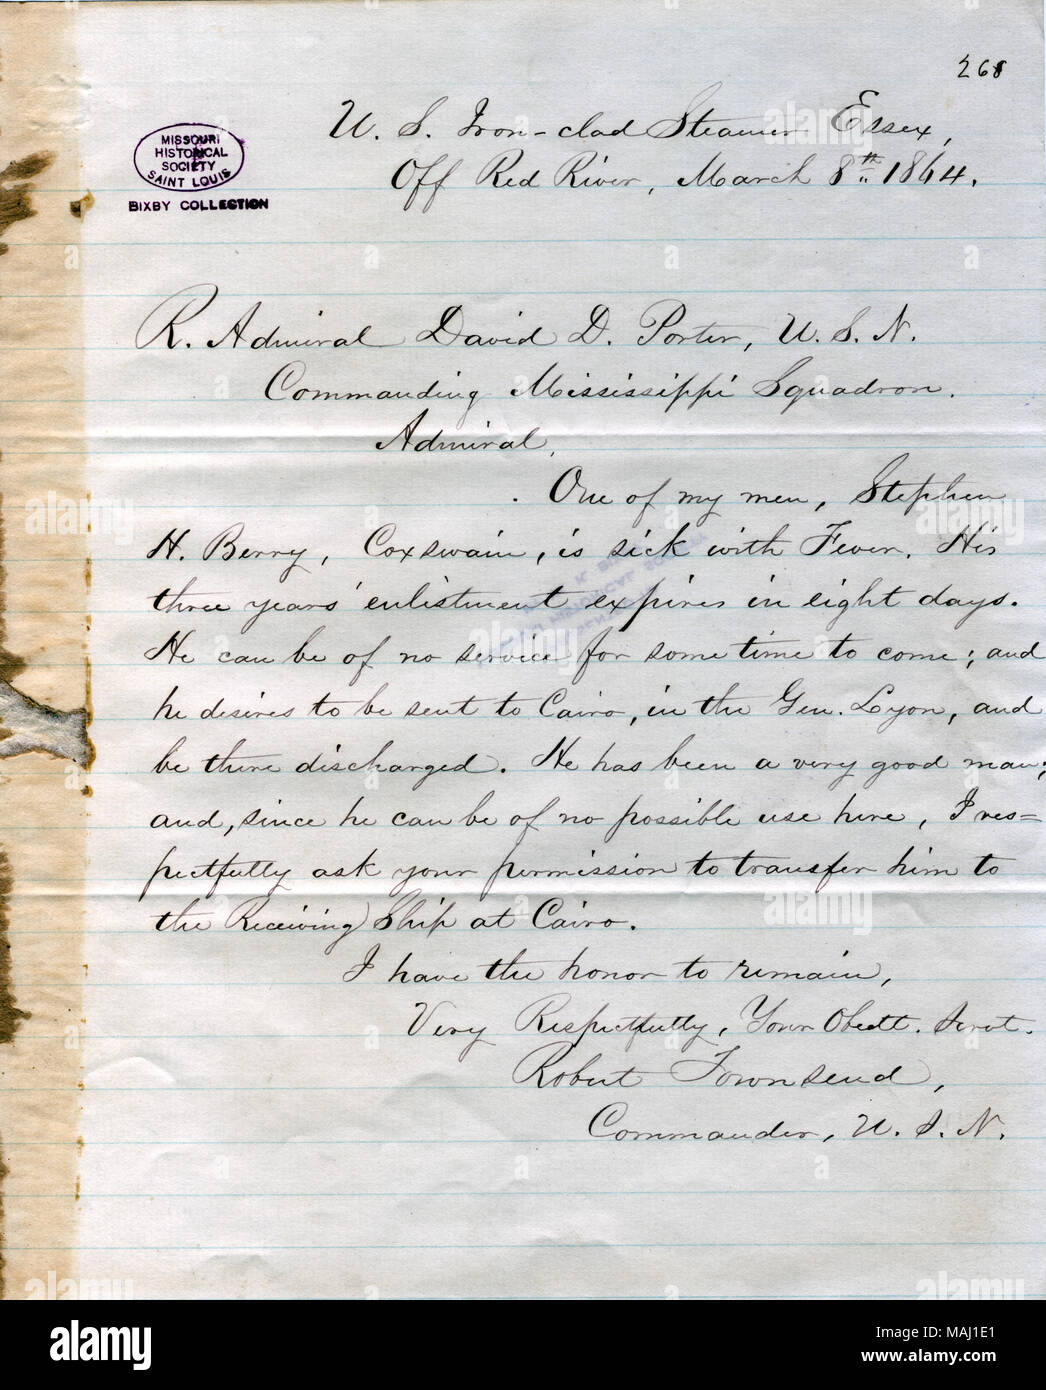 268
U. S. Iron-clad Steamer Essex,
Off Red River, March 8th. 1864.
MISSOURI
HISTORICAL
SOCIETY
SAINT LOUIS
BIXBY COLLECTION
R. Admiral David D. Porter, U. S. N.
Commanding Mississippi Squadron.
Admiral,
One of my men, Stephen
H. Berry, Coxswain, is sick with Fever. His
three years' enlistment expires in eight days.
He can be of no service for some time to come; and
he desires to be sent to Cairo, in the Gen. Lyon, and
be there discharged. He has been a very good man;
and, since he can be of no possible use here, I res=
pectfully ask your permission to transfer him to
the Receiving Ship at Cairo.
I have the honor to remain,
Very Respectfully, Your Obedt. Servt.
Robert Townsend,
Commander, U. S. N.
alamy
Image ID: MAJ1E1
www.alamy.com